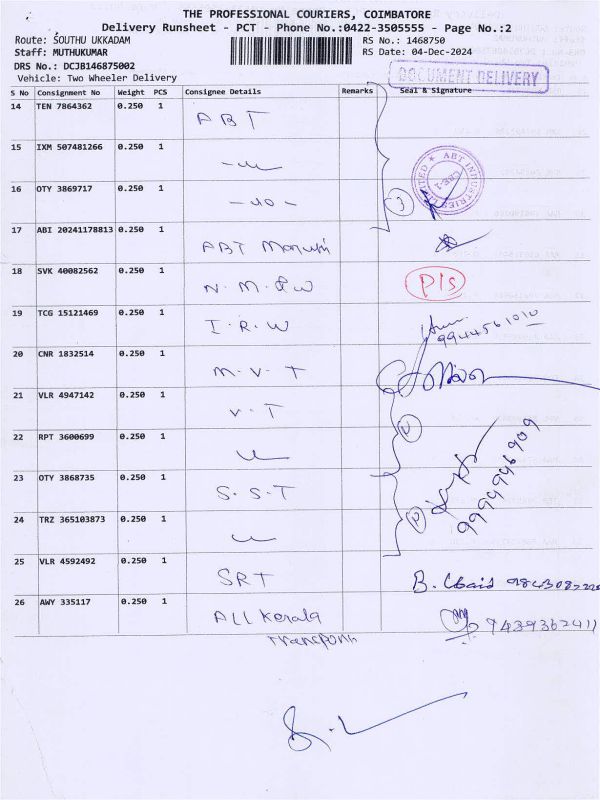 THE PROFESSIONAL COURIERS, COIMBATORE
Delivery Runsheet - PCT - Phone No.:0422-3505555 - Page No.:2
Route: SOUTHU UKKADAM
RS No.: 1468750
Staff: MUTHUKUMAR
RS Date: 04-Dec-2024
DRS No.: DCJB146875002
DOCUMENT DELIVERY
Vehicle: Two Wheeler Delivery
S No Consignment No Weight PCS Consignee Details Remarks Seal & Signature
14 TEN 7864362 0.250 1 ABT
15 IXM 507481266 0.250 1
16 OTY 3869717 0.250 1
3
ABT INDUSTRIES LIMITED CBE-1
17 ABI 20241178813 0.250 1 ABT Maruthi
18 SVK 40082562 0.250 1 N.M.R.W PIS
19 TCG 15121469 0.250 1 I.R.W 9944561010
20 CNR 1832514 0.250 1 M.V.T
21 VLR 4947142 0.250 1 V.T
22 RPT 3600699 0.250 1
23 OTY 3868735 0.250 1 S.S.T
9994946909
24 TRZ 365103873 0.250 1
25 VLR 4592492 0.250 1 SRT B.
26 AWY 335117 0.250 1 ALL Kerala 9439362411
Transport